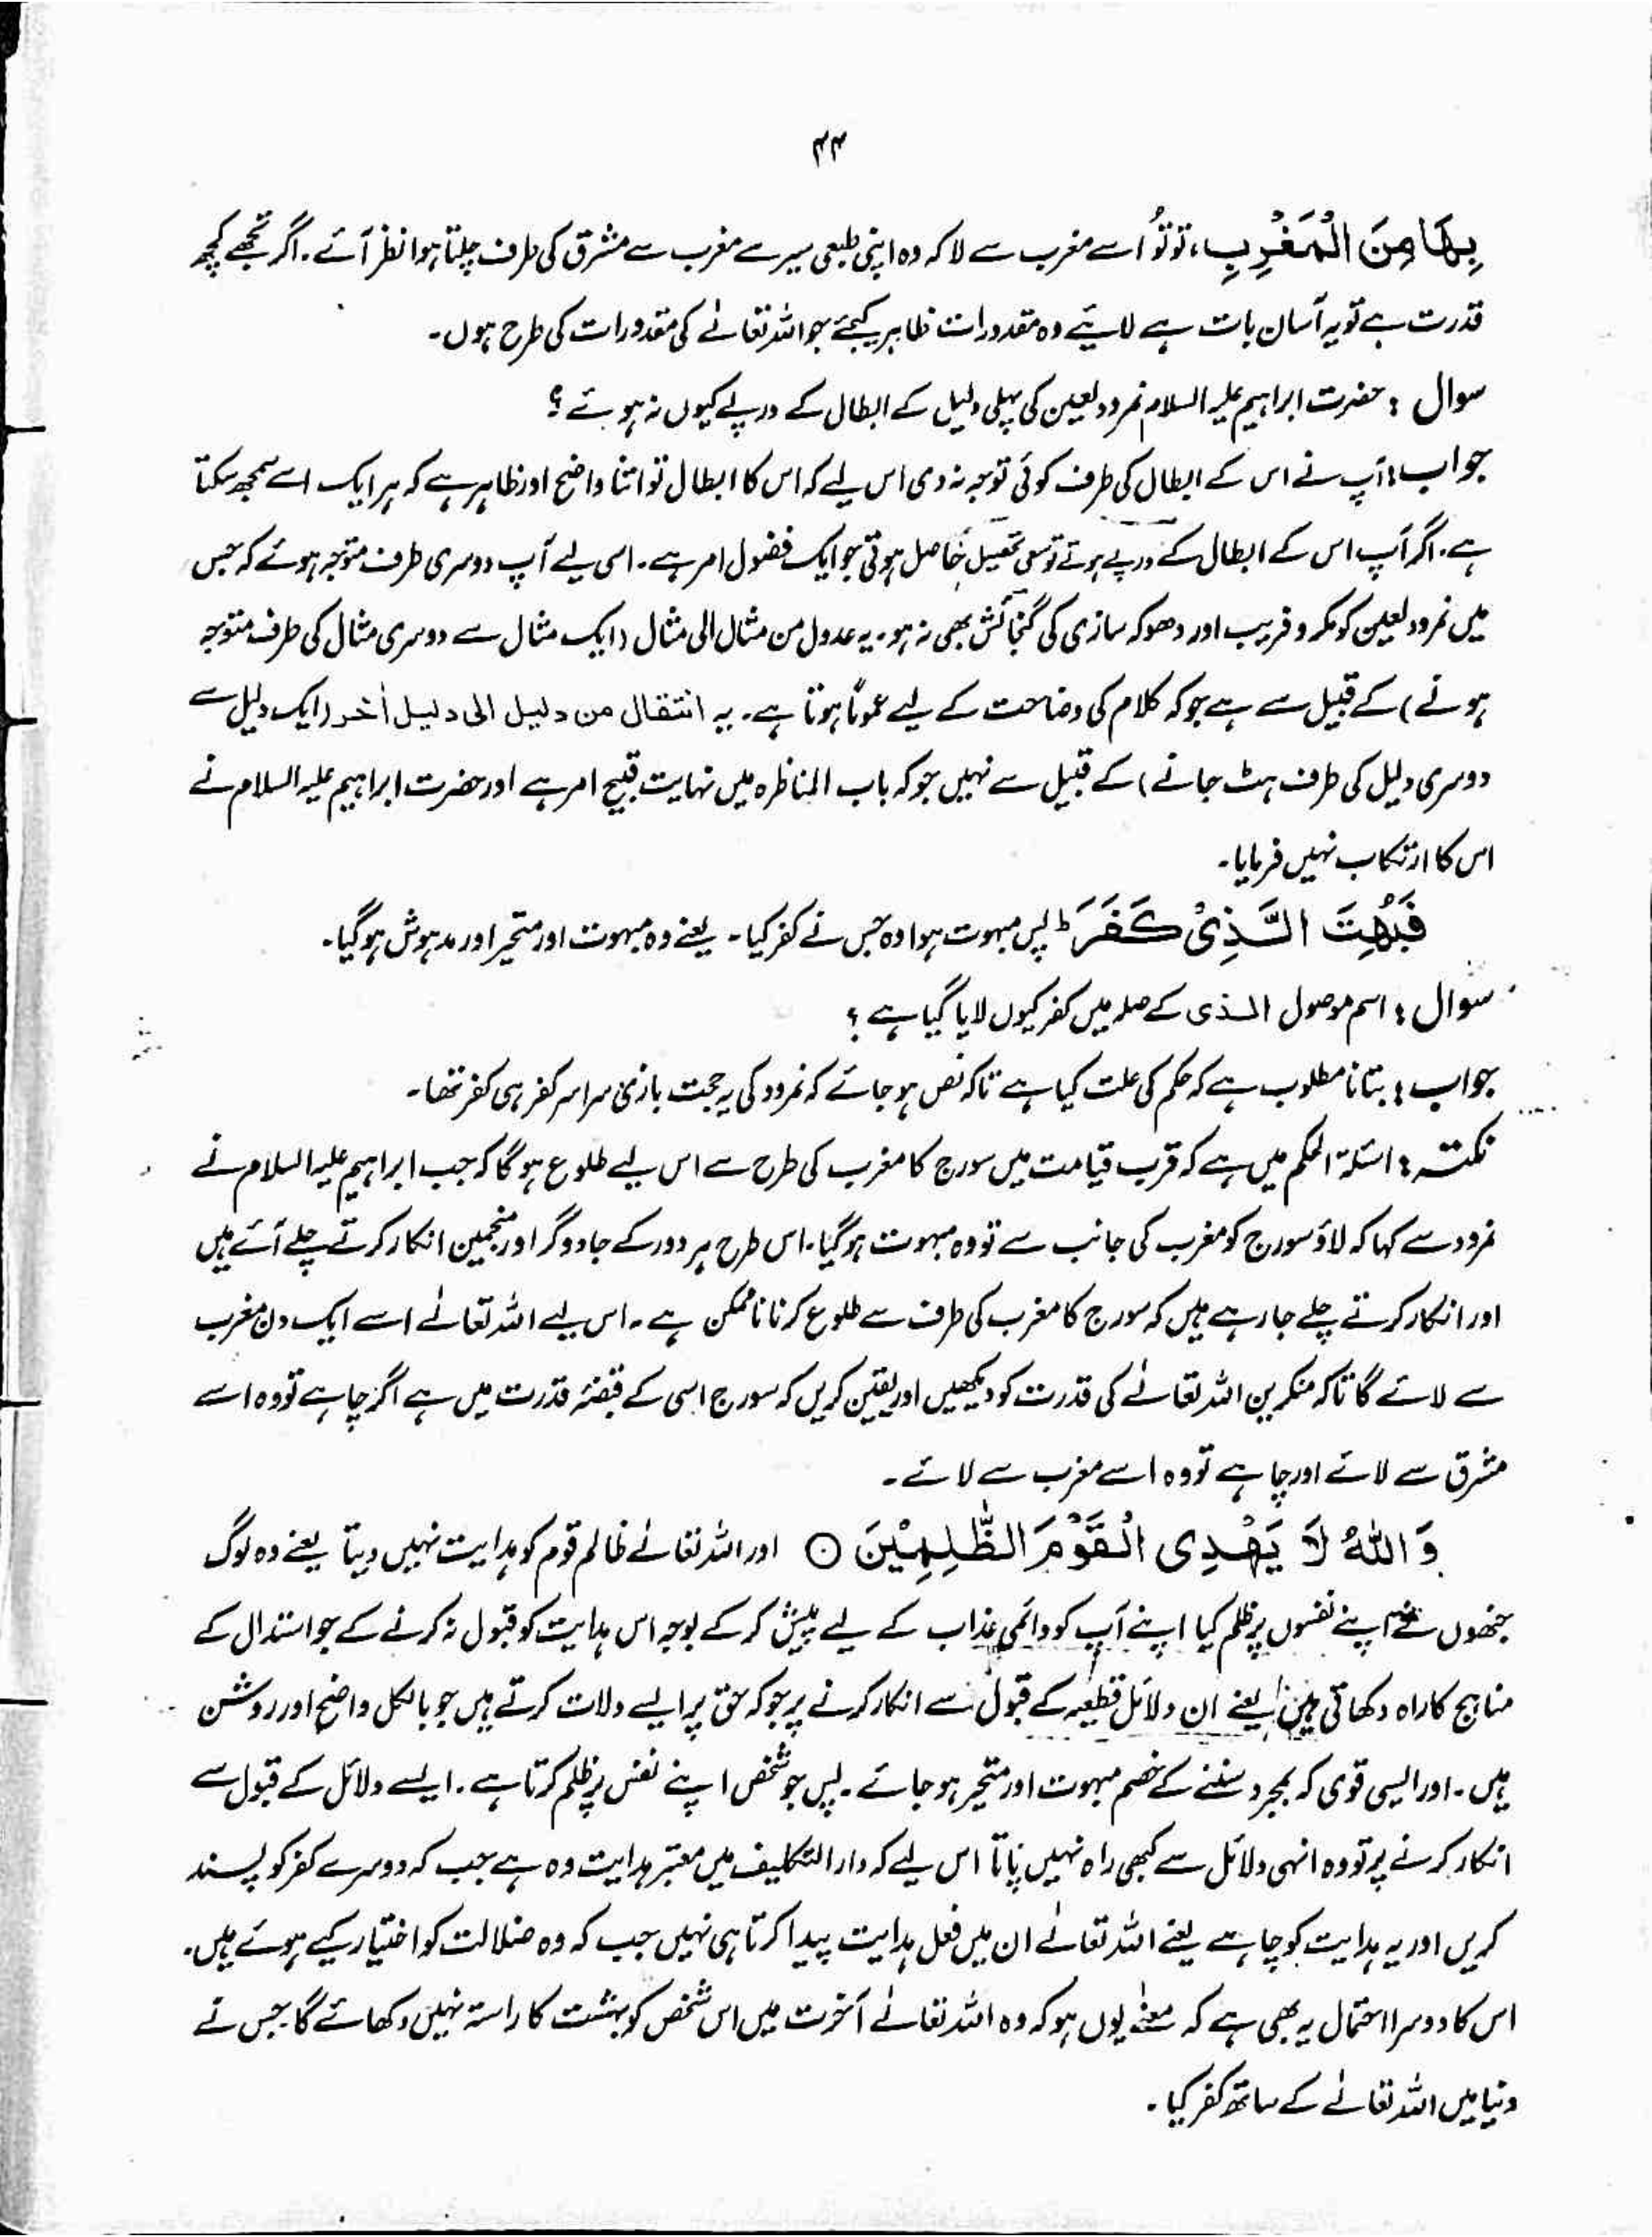 ۴۴
بِهَا مِنَ الْمَغْرِبِ، تو تُو اسے مغرب سے لا کہ وہ اپنی طبعی سیر سے مغرب سے مشرق کی طرف چلتا ہوا نظر آئے۔ اگر تجھے کچھ
قدرت ہے تو یہ آسان بات ہے لائیے وہ مقدورات ظاہر کیجئے جو اللہ تعالےٰ کی مقدورات کی طرح ہوں۔
سوال : حضرت ابراہیم علیہ السلام نمرود لعین کی پہلی دلیل کے ابطال کے درپے کیوں نہ ہوئے ؟
جواب : آپ نے اس کے ابطال کی طرف کوئی توجہ نہ دی اس لیے کہ اس کا ابطال تو اتنا واضح اور ظاہر ہے کہ ہر ایک اسے سمجھ سکتا
ہے۔ اگر آپ اس کے ابطال کے درپے ہوتے تو سعی تحصیل حاصل ہوتی جو ایک فضول امر ہے۔ اسی لیے آپ دوسری طرف متوجہ ہوئے کہ جس
میں نمرود لعین کو مکر و فریب اور دھوکہ سازی کی گنجائش بھی نہ ہو۔ یہ عدول من مثال الی مثال (ایک مثال سے دوسری مثال کی طرف متوجہ
ہونے) کے قبیل سے ہے جو کہ کلام کی وضاحت کے لیے عموماً ہوتا ہے۔ یہ انتقال من دلیل الی دلیل اٰخر (ایک دلیل سے
دوسری دلیل کی طرف ہٹ جانے) کے قبیل سے نہیں جو کہ باب المناظرہ میں نہایت قبیح امر ہے اور حضرت ابراہیم علیہ السلام نے
اس کا ارتکاب نہیں فرمایا۔
فَبُهِتَ الَّذِیْ كَفَرَ ؕ پس مبہوت ہوا وہ جس نے کفر کیا۔ یعنے وہ مبہوت اور متحیر اور مدہوش ہوگیا۔
سوال : اسم موصول الذی کے صلہ میں کفر کیوں لایا گیا ہے ؟
جواب : بتانا مطلوب ہے کہ حکم کی علت کیا ہے تاکہ نص ہو جائے کہ نمرود کی یہ حجت بازی سراسر کفر ہی کفر تھا۔
نکتہ : اسئلۃ الحکم میں ہے کہ قرب قیامت میں سورج کا مغرب کی طرح سے اس لیے طلوع ہوگا کہ جب ابراہیم علیہ السلام نے
نمرود سے کہا کہ لاؤ سورج کو مغرب کی جانب سے تو وہ مبہوت ہوگیا۔ اس طرح ہر دور کے جادوگر اور منجمین انکار کرتے چلے آئے ہیں
اور انکار کرتے چلے جا رہے ہیں کہ سورج کا مغرب کی طرف سے طلوع کرنا ناممکن ہے۔ اس لیے اللہ تعالےٰ اسے ایک دن مغرب
سے لائے گا تاکہ منکرین اللہ تعالےٰ کی قدرت کو دیکھیں اور یقین کریں کہ سورج اسی کے قبضۂ قدرت میں ہے اگر چاہے تو وہ اسے
مشرق سے لائے اور چاہے تو وہ اسے مغرب سے لائے۔
وَاللّٰهُ لَا یَهْدِی الْقَوْمَ الظّٰلِمِیْنَ ○ اور اللہ تعالےٰ ظالم قوم کو ہدایت نہیں دیتا یعنے وہ لوگ
جنھوں نے اپنے نفسوں پر ظلم کیا اپنے آپ کو دائمی عذاب کے لیے پیش کر کے بوجہ اس ہدایت کو قبول نہ کرنے کے جو استدلال کے
مناہج کا راہ دکھاتی ہیں یعنے ان دلائل قطعیہ کے قبول سے انکار کرنے پر جو کہ حق پر ایسے دلالت کرتے ہیں جو بالکل واضح اور روشن
ہیں۔ اور ایسی قوی کہ بمجرد سننے کے خصم مبہوت اور متحیر ہو جائے۔ پس جو شخص اپنے نفس پر ظلم کرتا ہے۔ ایسے دلائل کے قبول سے
انکار کرنے پر تو وہ انہی دلائل سے کبھی راہ نہیں پاتا اس لیے کہ دار التکلیف میں معتبر ہدایت وہ ہے جب کہ دوسرے کفر کو پسند
کریں اور یہ ہدایت کو چاہے یعنے اللہ تعالےٰ ان میں فعل ہدایت پیدا کرتا ہی نہیں جب کہ وہ ضلالت کو اختیار کیے ہوئے ہیں۔
اس کا دوسرا احتمال یہ بھی ہے کہ معنےٰ یوں ہو کہ وہ اللہ تعالےٰ آخرت میں اس شخص کو بہشت کا راستہ نہیں دکھائے گا۔ جس نے
دنیا میں اللہ تعالےٰ کے ساتھ کفر کیا۔